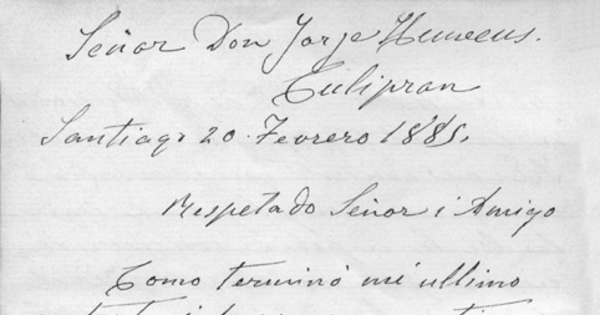 Señor Don Jorje Huneeus.
Culipran
Santiago 20. Fevrero 1885.
Respetado Señor i Amigo
Como terminó mi ultimo